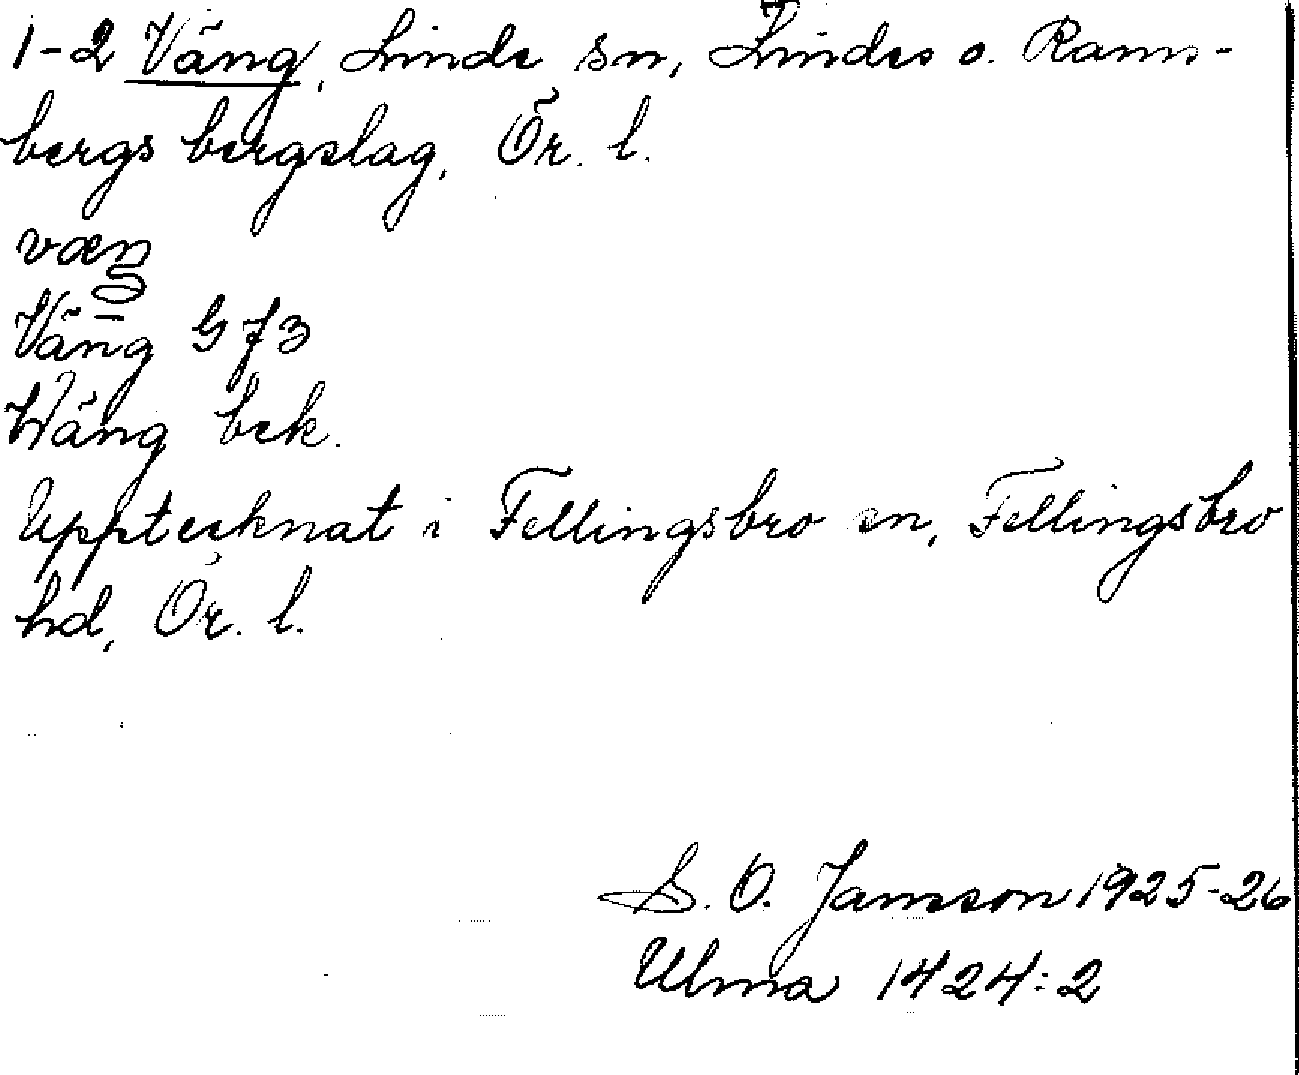 1-2 Väng, Linde sn, Lindes o. Rams-
bergs bergslag, Ör. l.
væŋ
Väng G f3
Wäng bek.
Upptecknat i Fellingsbro sn, Fellingsbro
hd, Ör. l.
S. O. Jamson 1925-26
Ulma 1424:2